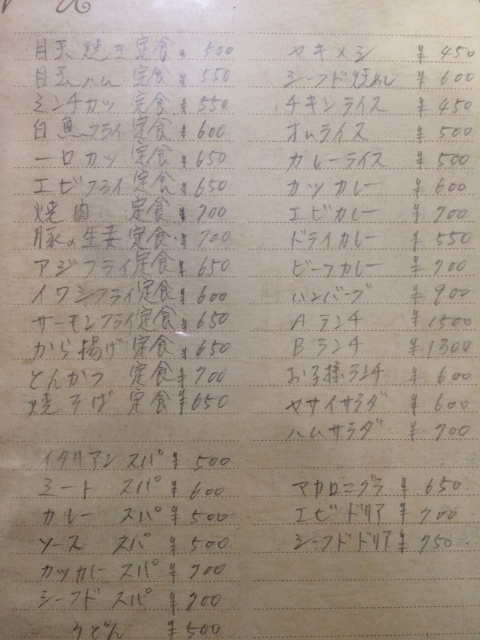 目玉焼き定食 ¥500
目玉ハム 定食 ¥550
ミンチカツ 定食 ¥550
白魚フライ定食 ¥600
一口カツ 定食 ¥650
エビフライ定食 ¥650
焼肉 定食 ¥700
豚の生姜定食 ¥700
アジフライ定食 ¥650
イワシフライ定食 ¥600
サーモンフライ定食 ¥650
から揚げ 定食 ¥650
とんかつ 定食 ¥700
焼そば 定食 ¥650
イタリアンスパ ¥500
ミート スパ ¥600
カレー スパ ¥500
ソース スパ ¥500
カツカレースパ ¥700
シーフドスパ ¥700
うどん ¥500
ヤキメシ ¥450
シーフド焼めし ¥600
チキンライス ¥450
オムライス ¥500
カレーライス ¥500
カツカレー ¥600
エビカレー ¥700
ドライカレー ¥550
ビーフカレー ¥700
ハンバーグ ¥900
Aランチ ¥1500
Bランチ ¥1300
お子様ランチ ¥600
ヤサイサラダ ¥600
ハムサラダ ¥700
マカロニグラ ¥650
エビドリア ¥700
シーフドドリア ¥750